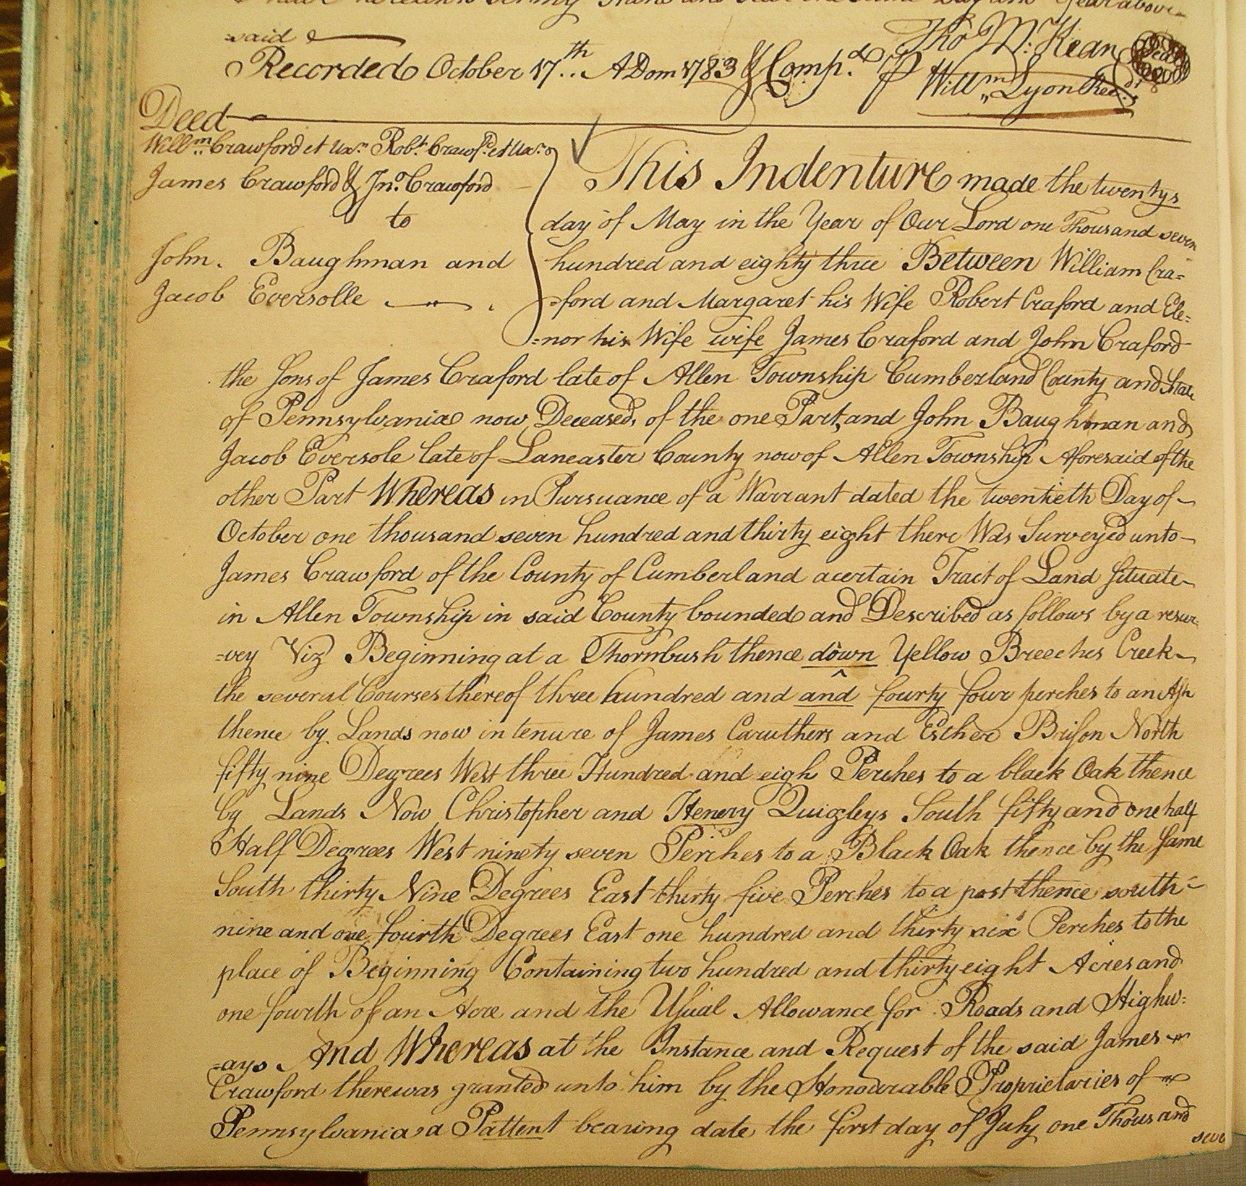 said
Recorded October 17th.. A Dom 1783 & Comp.d P
Tho M:Kean
Seal
Willm Lyon Rec.dr
Deed
Willm Crawford et Uxr. Robt. Crawfd. et Uxr.
James Crawford & Jno. Crawford
to
John. Baughman and
Jacob Eversolle
This Indenture made the twentys
day of May in the Year of Our Lord one Thousand seven
hundred and eighty three Between William Cra=
=ford and Margaret his Wife Robert Craford and Ele=
=nor his Wife wife James Craford and John Craford
the Sons of James Craford late of Allen Township Cumberland County and State
of Pennsylvania now Deceased, of the one Part, and John Baughman and
Jacob Eversole late of Lancaster County now of Allen Township Aforesaid of the
other Part Whereas in Pursuance of a Warrant dated the twentieth Day of
October one thousand seven hundred and thirty eight there Was Surveyed unto
James Crawford of the County of Cumberland a certain Tract of Land Situate
in Allen Township in said County bounded and Described as follows by a resur=
=vey Viz Beginning at a Thornbush thence down Yellow Breeches Creek
the several Courses thereof three hundred and and fourty four perches to an Ash
thence by Lands now in tenure of James Caruthers and Escher Brison North
fifty nine Degrees West three Hundred and eigh Perches to a black Oak thence
by Lands Now Christopher and Henery Quigleys South fifty and one half
Half Degrees West ninety seven Perches to a Black Oak thence by the Same
South thirty Nine Degrees East thirty five Perches to a post thence south=
nine and one fourth Degrees East one hundred and thirty six Perches to the
place of Beginning Containing two hundred and thirty eight Acres and
one fourth of an Acre and the Usual Allowance for Roads and Highw=
=ays. And Whereas at the Instance and Request of the said James
Crawford there was granted unto him by the Honourable Proprietaries of
Pennsylvania a Pattent bearing date the first day of July one Thousand
seve